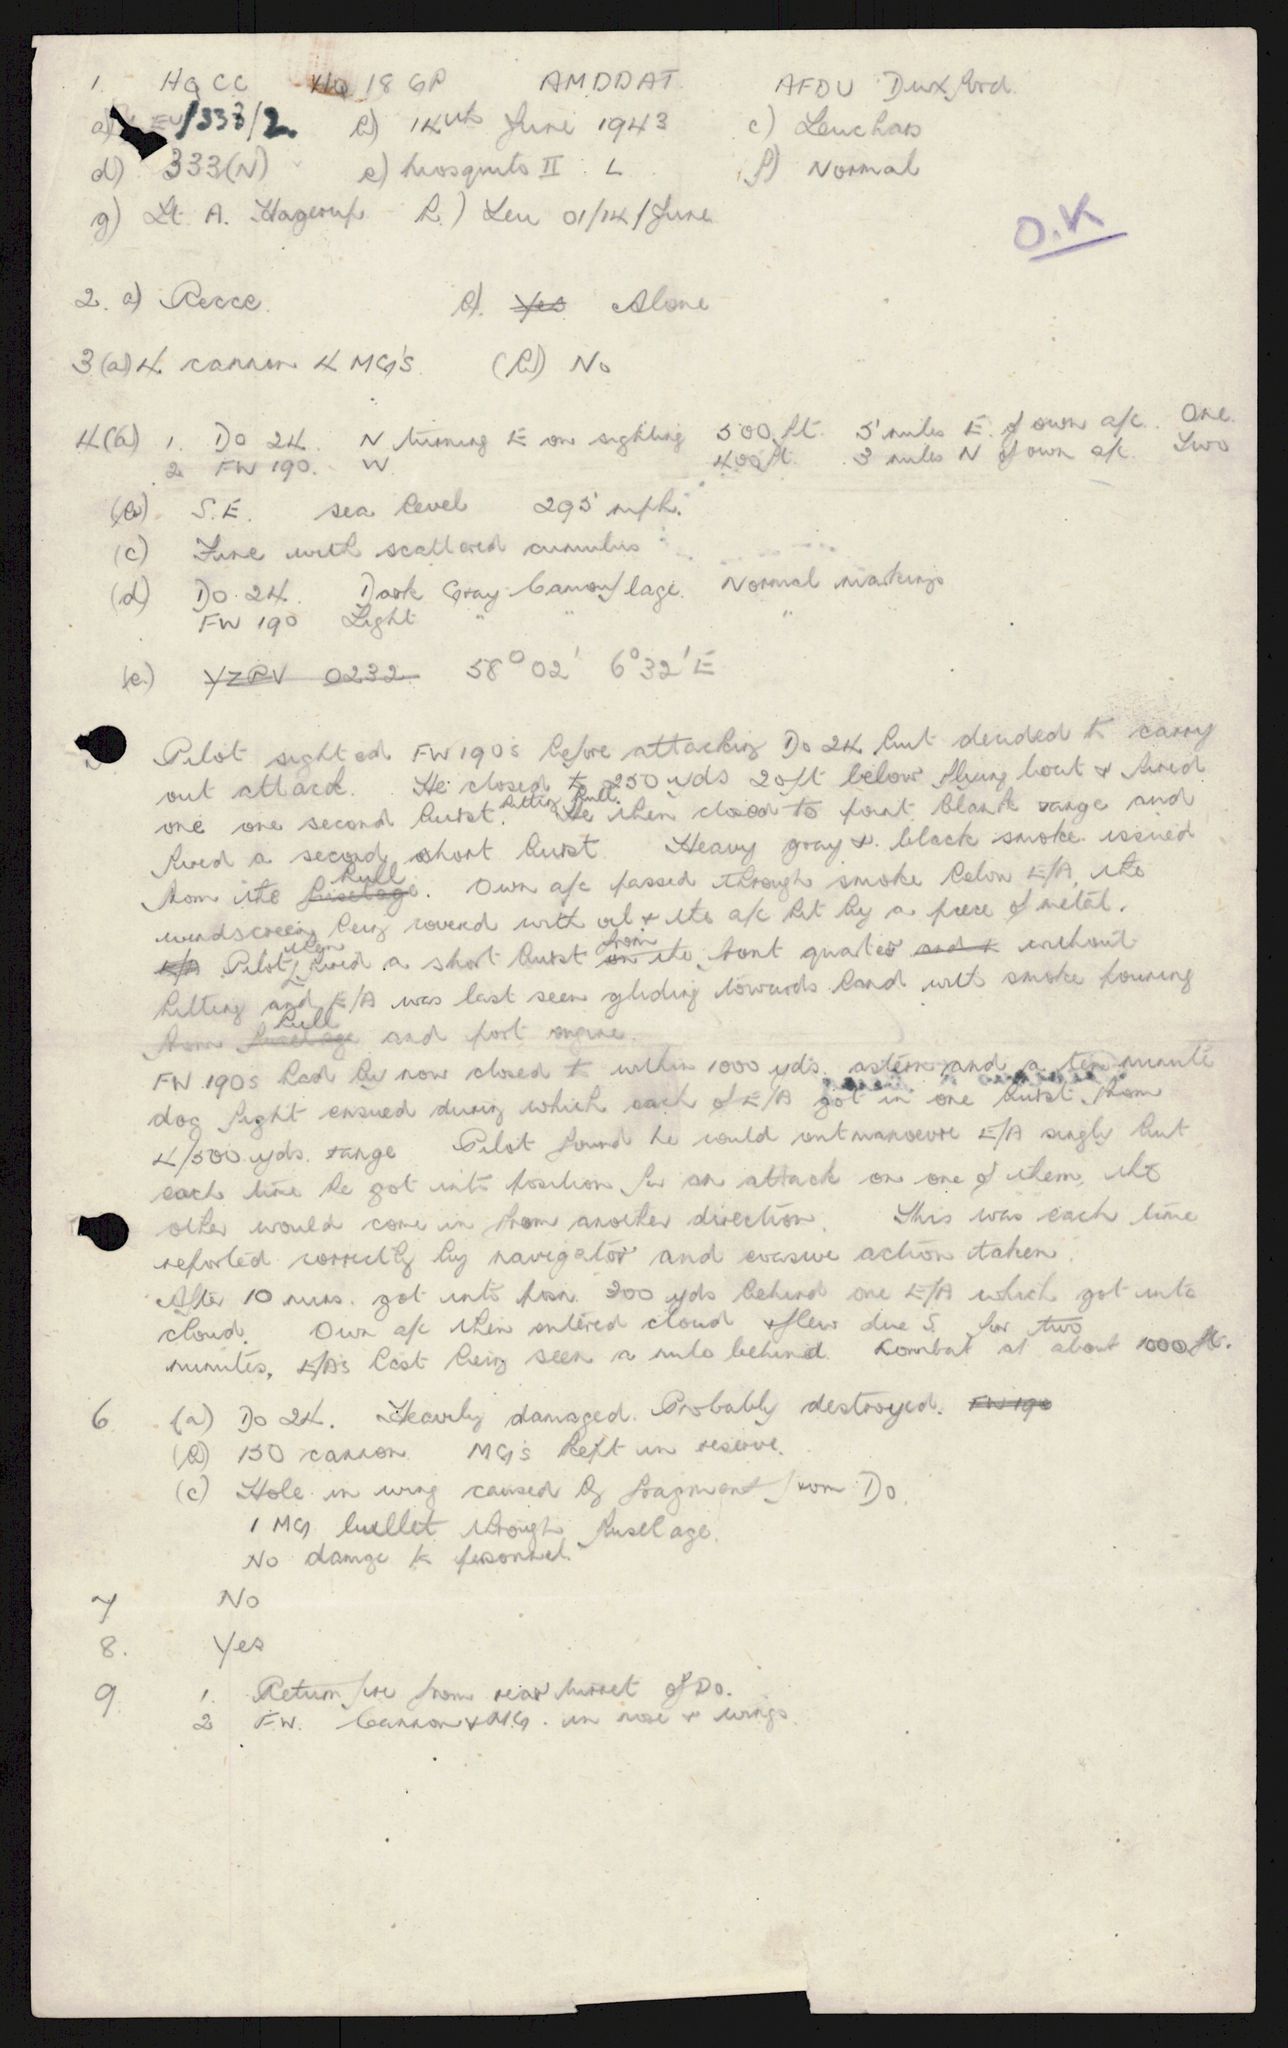 1. HQ CC HQ 18 GP AMDDAT AFDU Duxford
a) LEU/333/2 b) 14th June 1943 c) Leuchars
d) 333(N) e) Mosquito II L f) Normal
g) Lt. A. Hagerup h.) Leu 01/14/June
O.K
2. a) Recce. b). Yes Alone
3(a) 4 cannon 4 MG's. (b) No
4(a) 1. Do 24. N turning E on sighting 500 ft. 5 miles E. of own a/c. One.
2 FW 190. W. 400 ft. 3 miles N of own a/c. Two
(b) S.E. sea level 295 mph.
(c) Fine with scattered cumulus
(d) Do 24. Dark Gray Camouflage. Normal markings
FW 190 Light " " "
(e.) YZRV 0232 58° 02' 6° 32' E
Pilot sighted FW 190's before attacking Do 24 but decided to carry
out attack. He closed to 250 yds 20ft below flying boat & fired
one one second burst. hitting hull. He then closed to point blank range and
fired a second short burst. Heavy gray & black smoke issued
from the fuselage. hull Own a/c passed through smoke below E/A, the
windscreen being covered with oil & the a/c hit by a piece of metal.
E/A Pilot then fired a short burst on from the front quarter and t without
hitting and E/A was last seen gliding towards land with smoke pouring
from fuselage hull and port engine.
FW 190s had by now closed to within 1000 yds. astern and a ten minute
dog fight ensued during which each of E/A got in one burst from
4/500 yds. range Pilot found he could outmanoevre E/A singly but
each time he got into position for an attack on one of them, the
other would come in from another direction. This was each time
reported correctly by navigator and evasive action taken.
After 10 mins. got into posn. 300 yds behind one E/A which got into
cloud. Own a/c then entered cloud & flew due S. for two
minutes, E/A's last being seen a mile behind. Combat at about 1000 ft.
6 (a) Do 24. Heavily damaged. Probably destroyed. FW 190
(b) 150 cannon MG's kept in reserve.
(c) Hole in wing caused by fragment from Do.
1 MG bullet through fuselage.
No damage to personnel.
7 No
8. Yes
9 1. Return fire from rear turret of Do.
2 FW. Cannon & M.G. in nose & wings.